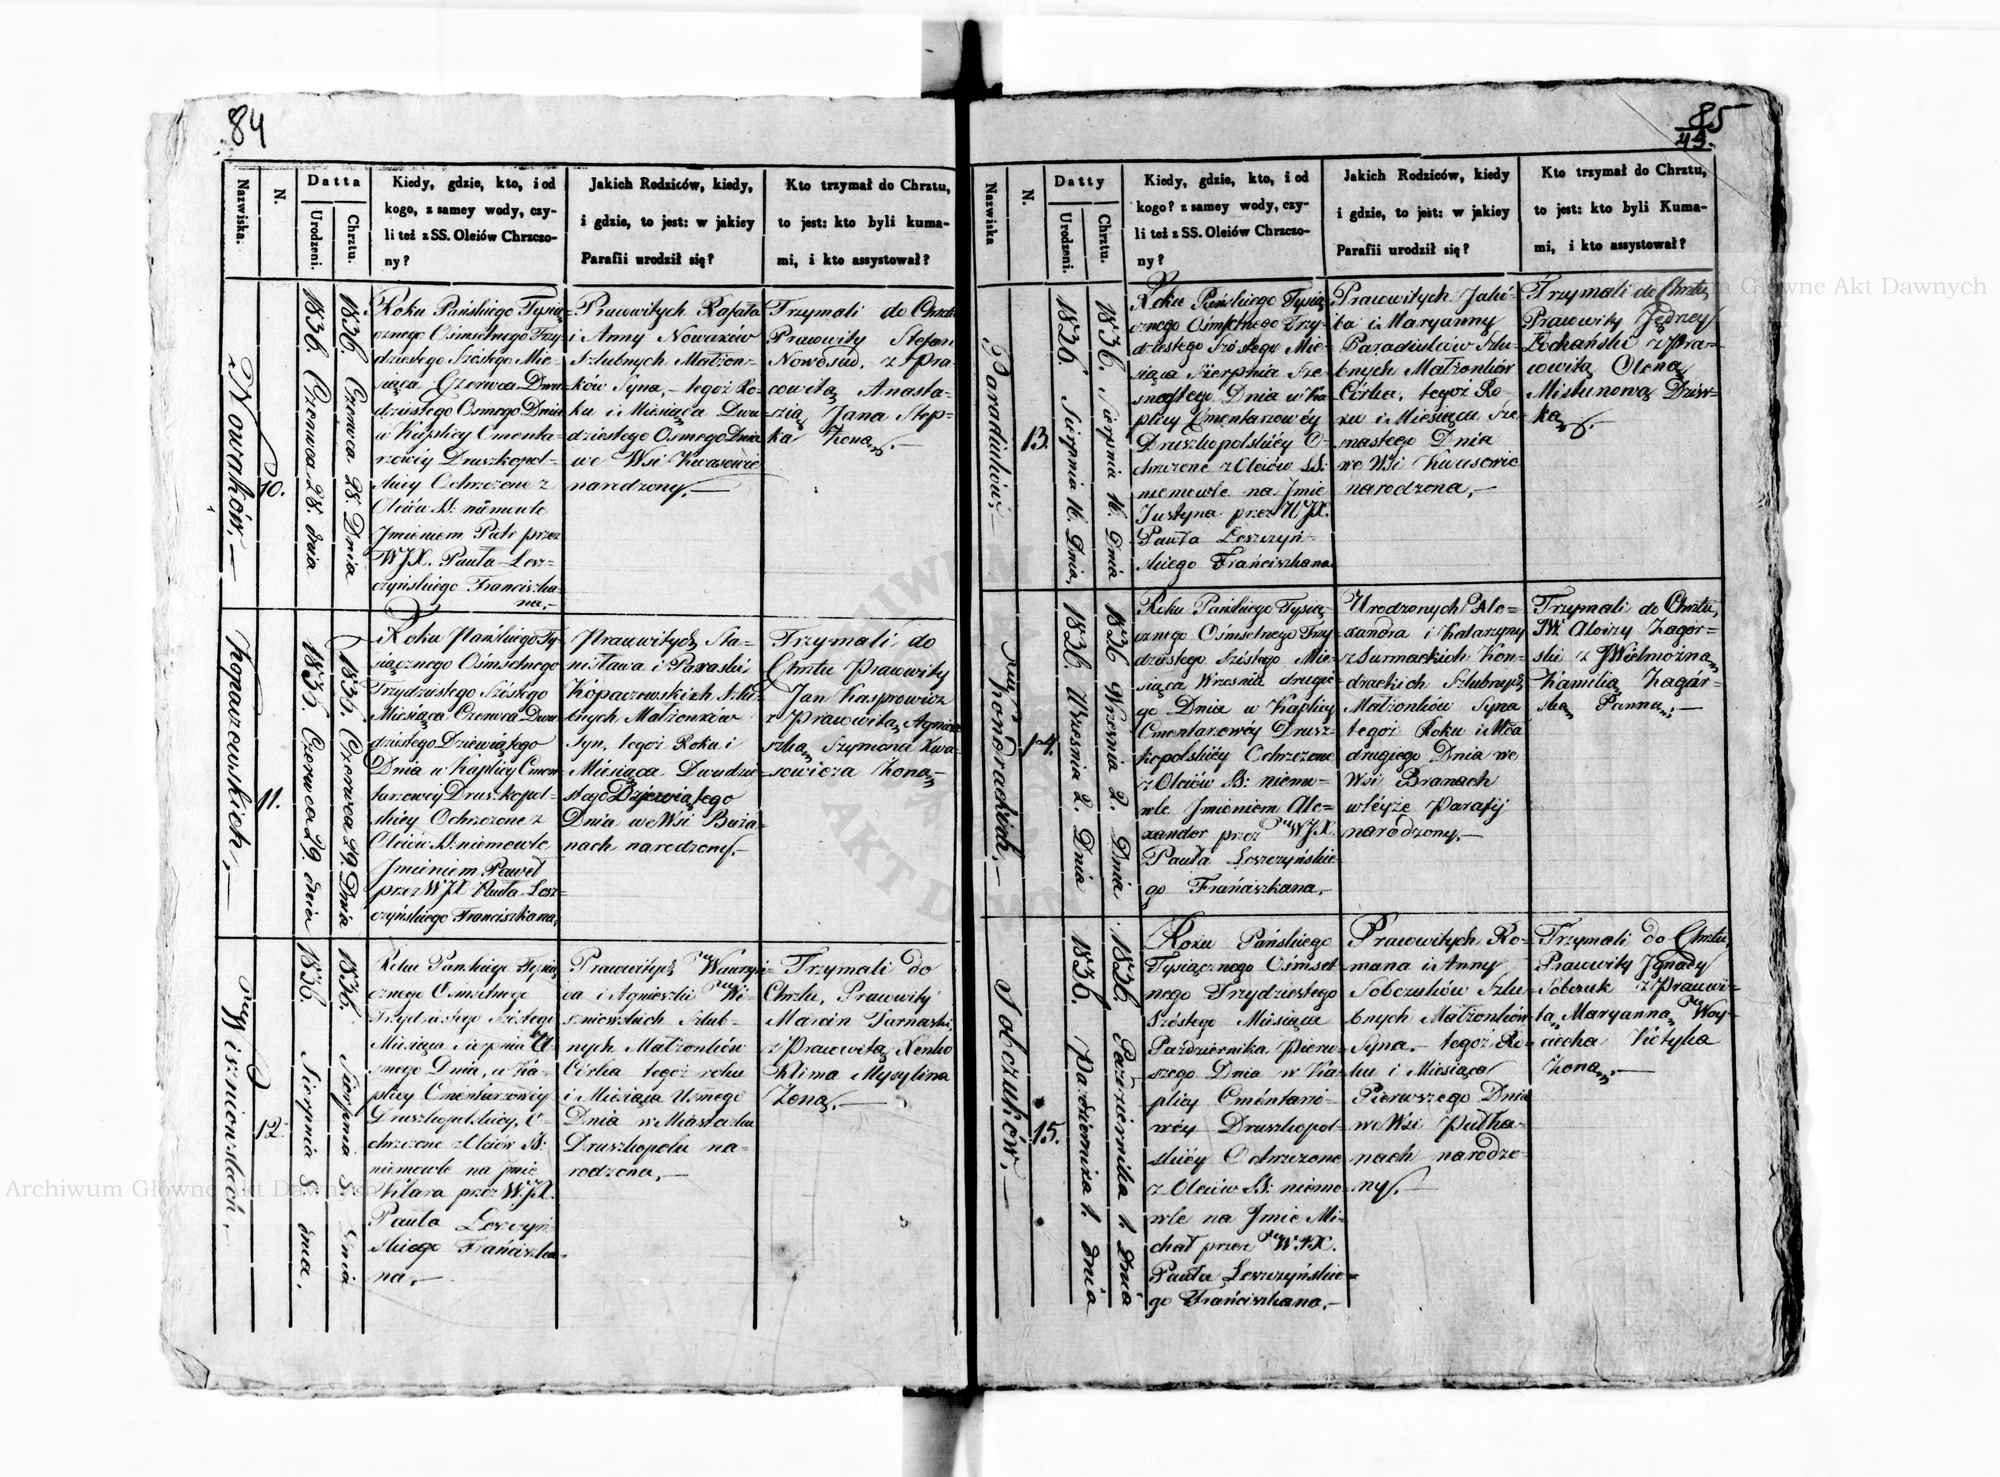 84
Nazwiska.
N.
Datta
Urodzeni.
Chrztu.
Kiedy, gdzie, kto, i od
kogo, z samey wody, czy-
li też z SS. Oleiów Chrzczo-
ny?
Jakich Rodziców, kiedy,
i gdzie, to jest: w jakiey
Parafii urodził się?
Kto trzymał do Chrztu,
to jest: kto byli kuma-
mi, i kto assystował?
Nowaków.
10.
1836. Czerwca 28. dnia
1836. Czerwca 28. Dnia
Roku Pańskiego Tysią-
cznego Ośmsetnego Trzy-
dziestego Szóstego Mie-
siąca Czerwca Dwu-
dziestego Osmego Dnia
w Kaplicy Cmenta-
rzowéy Druszkopol-
skiey Ochrzczone z
Oleiów SS: niemowle
Jmieniem Piotr przez
WJX. Pawła Lesz-
czyńskiego Franciszka-
na.
Prawowitych Rafała
i Anny Nowaków
Szlubnych Małżon-
ków Syna, tegoż Ro-
ku i Miesiąca Dwu-
dziestego Osmego Dnia
we Wsi Kwasowie
narodzony.
Trzymali do Chrztu
Prawowity Stefan
Nowosad. z Pra-
cowitą Anasta-
szią Jana Step-
ka Żoną.
Kopaczowskich.
11.
1836. Czerwca 29. dnia
1836. Czerwca 29. Dnia
Roku Pańskiego Ty-
siącznego Ośmsetnego
Trzydziestego Szóstego
Miesiąca Czerwca Dwu-
dziestego Dziewiątego
Dnia w Kaplicy Cmen-
tarzowéy Druszkopol-
skiey Ochrzczone z
Oleiów SS: niemowle
Jmieniem Paweł
przez WJX Pawła Lesz-
czyńskiego Franciszkana,
Prawowitych Sta-
nisława i Paraski
Kopaczowskich Szlu-
bnych Małżonków
Syn, tegoż Roku i
Miesiąca Dwudzie-
stego Dziewiątego
Dnia we Wsi Buża-
nach narodzony.
Trzymali do
Chrztu Prawowity
Jan Kasprowicz
z Prawowitą Agnie-
szką Szymona Kwa-
sowicza Żoną
Wiszniowskich.
12.
1836. Sierpnia 8 dnia.
1836. Sierpnia 8. Dnia
Roku Pańskiego Tysią-
cznego Ośmsetnego
Trzydziestego Szóstego
Miesiąca Sierpnia U-
smego Dnia, w Ka-
plicy Cmentarzowéy
Druszkopolskiey, O-
chrzczone z Oleiów SS:
niemowle na jmie
Klara przez W.JX.
Pawła Leszczyń-
skiego Franciszka-
na.
Prawowitych Wawrzyń-
ca i Agnieszki Wi-
szniewskich Szlub-
nych Małżonków
Córka tegoż roku
i Miesiąca Usmego
Dnia w Miasteczku
Druszkopolu na-
rodzona.
Trzymali do
Chrztu, Prawowity
Marcin Tarnaski,
z Prawowitą Xenką
Klima Mysylina
Żoną.
85
43.
Nazwiska
N.
Datty
Urodzeni.
Chrztu.
Kiedy, gdzie, kto, i od
kogo? z samey wody, czy-
li też z SS. Oleiów Chrzczo-
ny?
Jakich Rodziców, kiedy
i gdzie, to jest: w jakiey
Parafii urodził się?
Kto trzymał do Chrztu,
to jest: kto byli Kuma-
mi, i kto assystował?
Paradiuków.
13.
1836. Sierpnia 16. Dnia,
1836. Sierpnia 16. Dnia
Roku Pańskiego Tysią-
cznego Ośmsetnego Trzy-
dziestego Szóstego Mie-
siąca Sierpnia Sze-
snastego Dnia w Ka-
plicy Cmentarzowéy
Druszkopolskiéy O-
chrzczone z Oleiów SS:
niemowle na Jmie
Justyna przez WJX.
Pawła Leszczyń-
skiego Franciszkana
Prawowitych Jakó-
ba i Maryanny
Paradiuków Szlu-
bnych Małżonków
Córka, tegoż Ro-
ku i Miesiąca Sze-
snastego Dnia
we Wsi Kwasowie
narodzona,
Trzymali do Chrztu,
Prawowity Jędrzey
Lochański z Pra-
wowitą Oleną
Mistunową Dziew-
ką.
Kondrackich.
14.
1836. Września 2. Dnia
1836 Września 2. Dnia
Roku Pańskiego Tysią-
cznego Ośmsetnego Trzy-
dziestego Szóstego Mie-
siąca Września drugie-
go Dnia w Kaplicy
Cmentarzowéy Drusz-
kopolskiéy Ochrzczone
z Oleiów SS: niemo-
wle Jmieniem Ale-
xander przez WJX.
Pawła Leszczyńskie-
go Franciszkana,
Urodzonych Ale-
xandra i Katarzyny
z Surmackich Kon-
drackich Szlubnych
Małżonków Syna
tegoż Roku i Mca
drugiego Dnia we
Wsi Branach
w téyże Parafij
narodzony.
Trzymali do Chrztu,
JW. Aloizy Zagór-
ski z JWielmożną
Kamilią Zagór-
ską Panną.
Sobczuków.
15.
1836. Października 1. dnia
1836. Października 1. Dnia
Roku Pańskiego
Tysiącznego Ośmset-
nego Trzydziestego
Szóstego Miesiąca
Października Pierw-
szego Dnia w Ka-
plicy Cmentarzo-
wéy Druszkopol-
skiéy Ochrzczone
z Oleiów SS: niemo-
wle na Jmie Mi-
chał przez W.JX.
Pawła Leszczyńskie-
go Franciszkana.
Prawowitych Ro-
mana i Anny
Sobczuków Szlu-
bnych Małżonków
Syna. tegoż Ro-
ku i Miesiąca
Pierwszego Dnia
we Wsi Pułha-
nach narodzo-
ny.
Trzymali do Chrztu,
Prawowity Jgnacy
Sobczuk z Prawowi-
tą, Maryanną Woy-
ciecha Kotyka
Żoną.
Archiwum Główne Akt Dawnych
Archiwum Główne Akt Dawnych